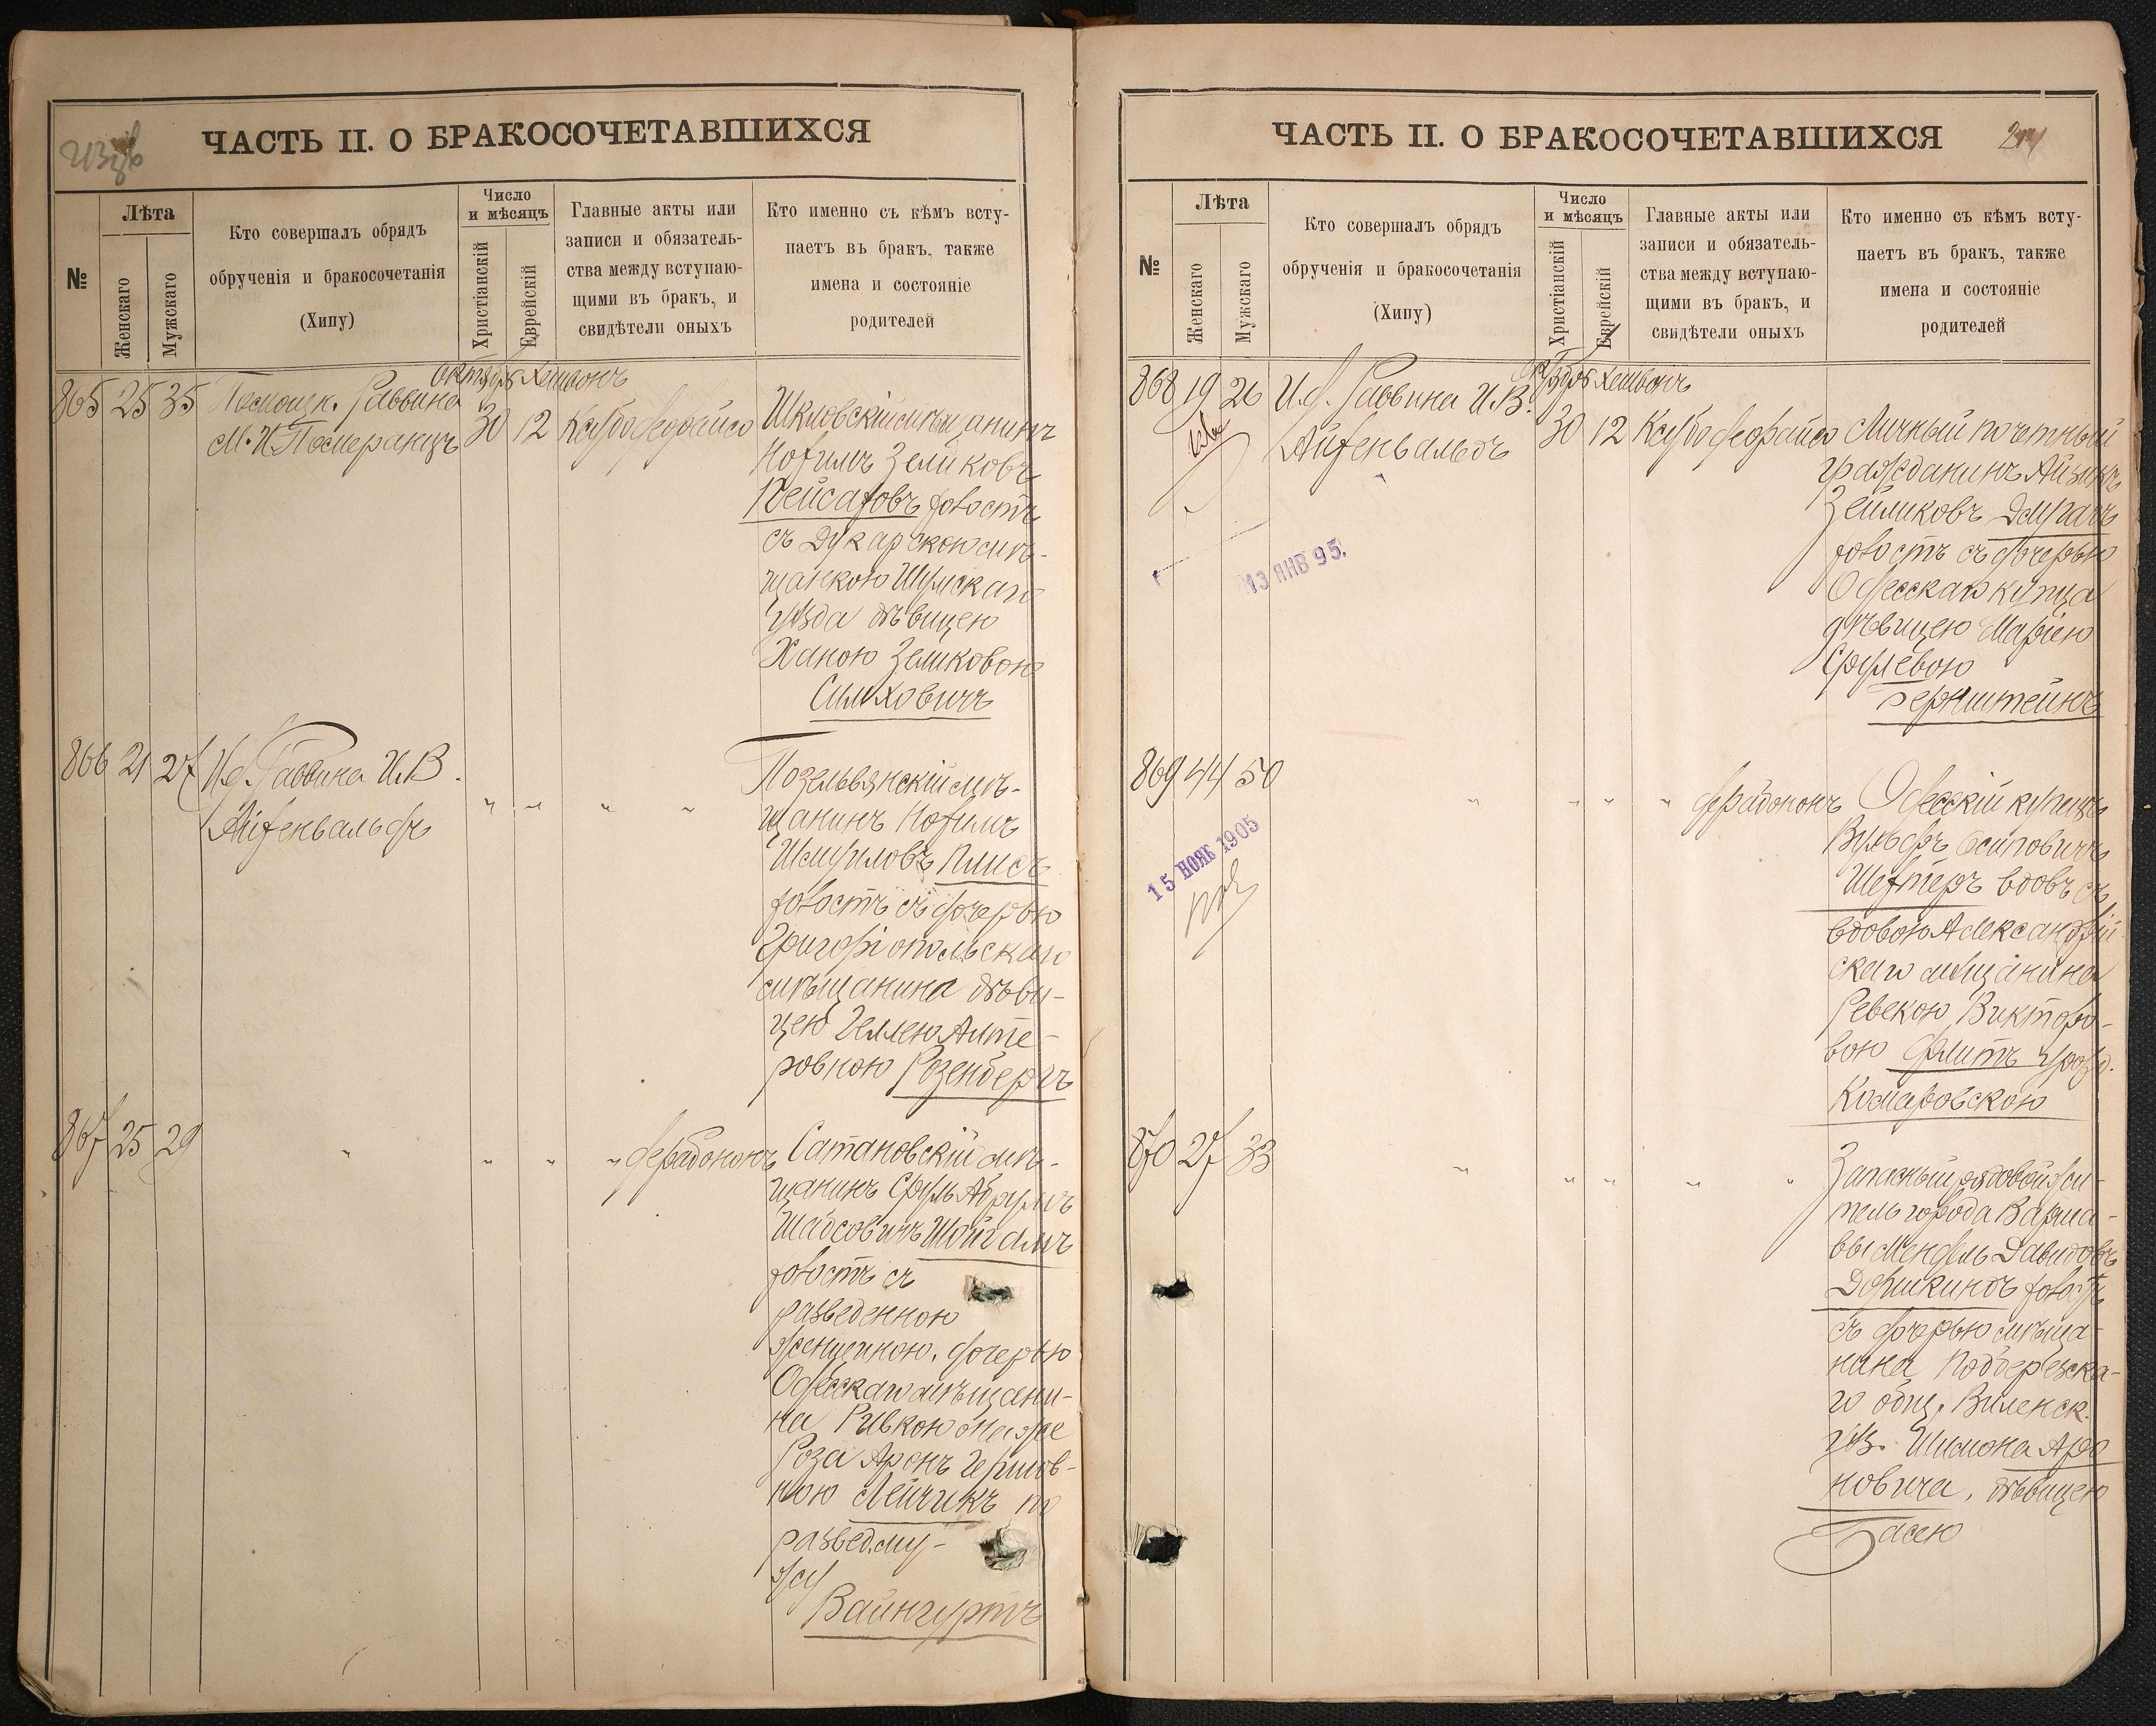 ЧАСТЬ II. О БРАКОСОЧЕТАВШИХСЯ
№
Лѣта
Женскаго
Мужскаго
Кто совершалъ обрядъ
обрученія и бракосочетанія
(Хипу)
Число
и мѣсяцъ
Христіанскій
Еврейскій
Главные акты или
записи и обязатель-
ства между вступаю-
щими въ бракъ, и
свидѣтели оныхъ
Кто именно съ кѣмъ всту-
паетъ въ бракъ, также
имена и состояніе
родителей
Октябрь Хешвонъ
865 25 35 Помощн. Раввина
М. И. Померанцъ 30 12 Ксубо
Шкловскій мѣщанинъ
Нохимъ Зеликовъ
Кейсаховъ холостъ
съ Дукарскою мѣ-
щанкою
уѣзда дѣвицею
Ханою Зеликовою
Симховичъ
866 21 27 И.д. Раввина И.В.
Айзенвальдъ
" " " "
мѣ-
щанинъ Нохимъ
Шмуиловъ Плисъ
холостъ съ дочерью
Григоріопольскаго
мѣщанина дѣви-
цею Геллею Алте-
ровною Розенбергъ
867 25 29 " " " "
Сатановскій мѣ-
щанинъ Сруль Абрумъ
Шабсовичъ
холостъ съ
разведенною
женщиною, дочерью
Одесскаго мѣщани-
на Ривкою она же
Роза Аронъ Гершов-
ною Лейчикъ по
развед. му-
жу
Вайнгуртъ
ЧАСТЬ II. О БРАКОСОЧЕТАВШИХСЯ
№
Лѣта
Женскаго
Мужскаго
Кто совершалъ обрядъ
обрученія и бракосочетанія
(Хипу)
Число
и мѣсяцъ
Христіанскій
Еврейскій
Главные акты или
записи и обязатель-
ства между вступаю-
щими въ бракъ, и
свидѣтели оныхъ
Кто именно съ кѣмъ всту-
паетъ въ бракъ, также
имена и состояніе
родителей
Октябрь Хешвонъ
868 19 26 И.д. Раввина И.В.
Айзенвальдъ 30 12 Ксубо
13 ЯНВ 95.
Личный почетный
гражданинъ Айзикъ
Зейликовъ
холостъ съ дочерью
Одесскаго купца
дѣвицею Маріею
Срулевою
Бернштейнъ
869 44 50 " " " "
15 НОЯБ 1905
Одесскій купецъ
Вульфъ Осиповичъ
Шехтеръ вдовъ съ
вдовою Александрій-
скаго мѣщанина
Ревекою Викторо-
вою Флитъ урожд.
Комаровскою
870 27 33 " " " " "
Запасный рядовой жи-
тель города Варша-
вы Мендель Давидовъ
холостъ
съ дочерью мѣща-
нина Подберезска-
го общ. Виленск.
уѣз. Шимона Аро
новича, дѣвицею
Басею